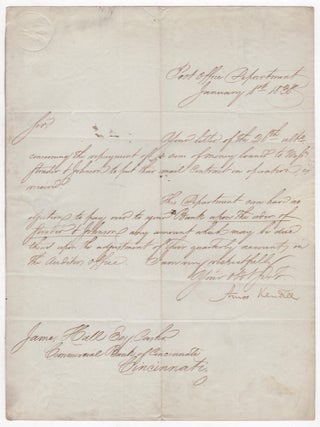 Post Office Department
January 8th 1838
Sir,
Your letter of the 28th ulto.
concerning the repayment of a sum of money loaned to Messrs
& Johnson to put their mail Contract in operation is
received.
This Department can have no
objection to pay over to your Bank upon the order of
& Johnson any amount which may be due
them upon the adjustment of their quarterly accounts in
the Auditor's office. I am very respectfully
Your Obt Servt
Amos Kendall
James Hall Esq Cashr
Commercial Bank of Cincinnati
Cincinnati